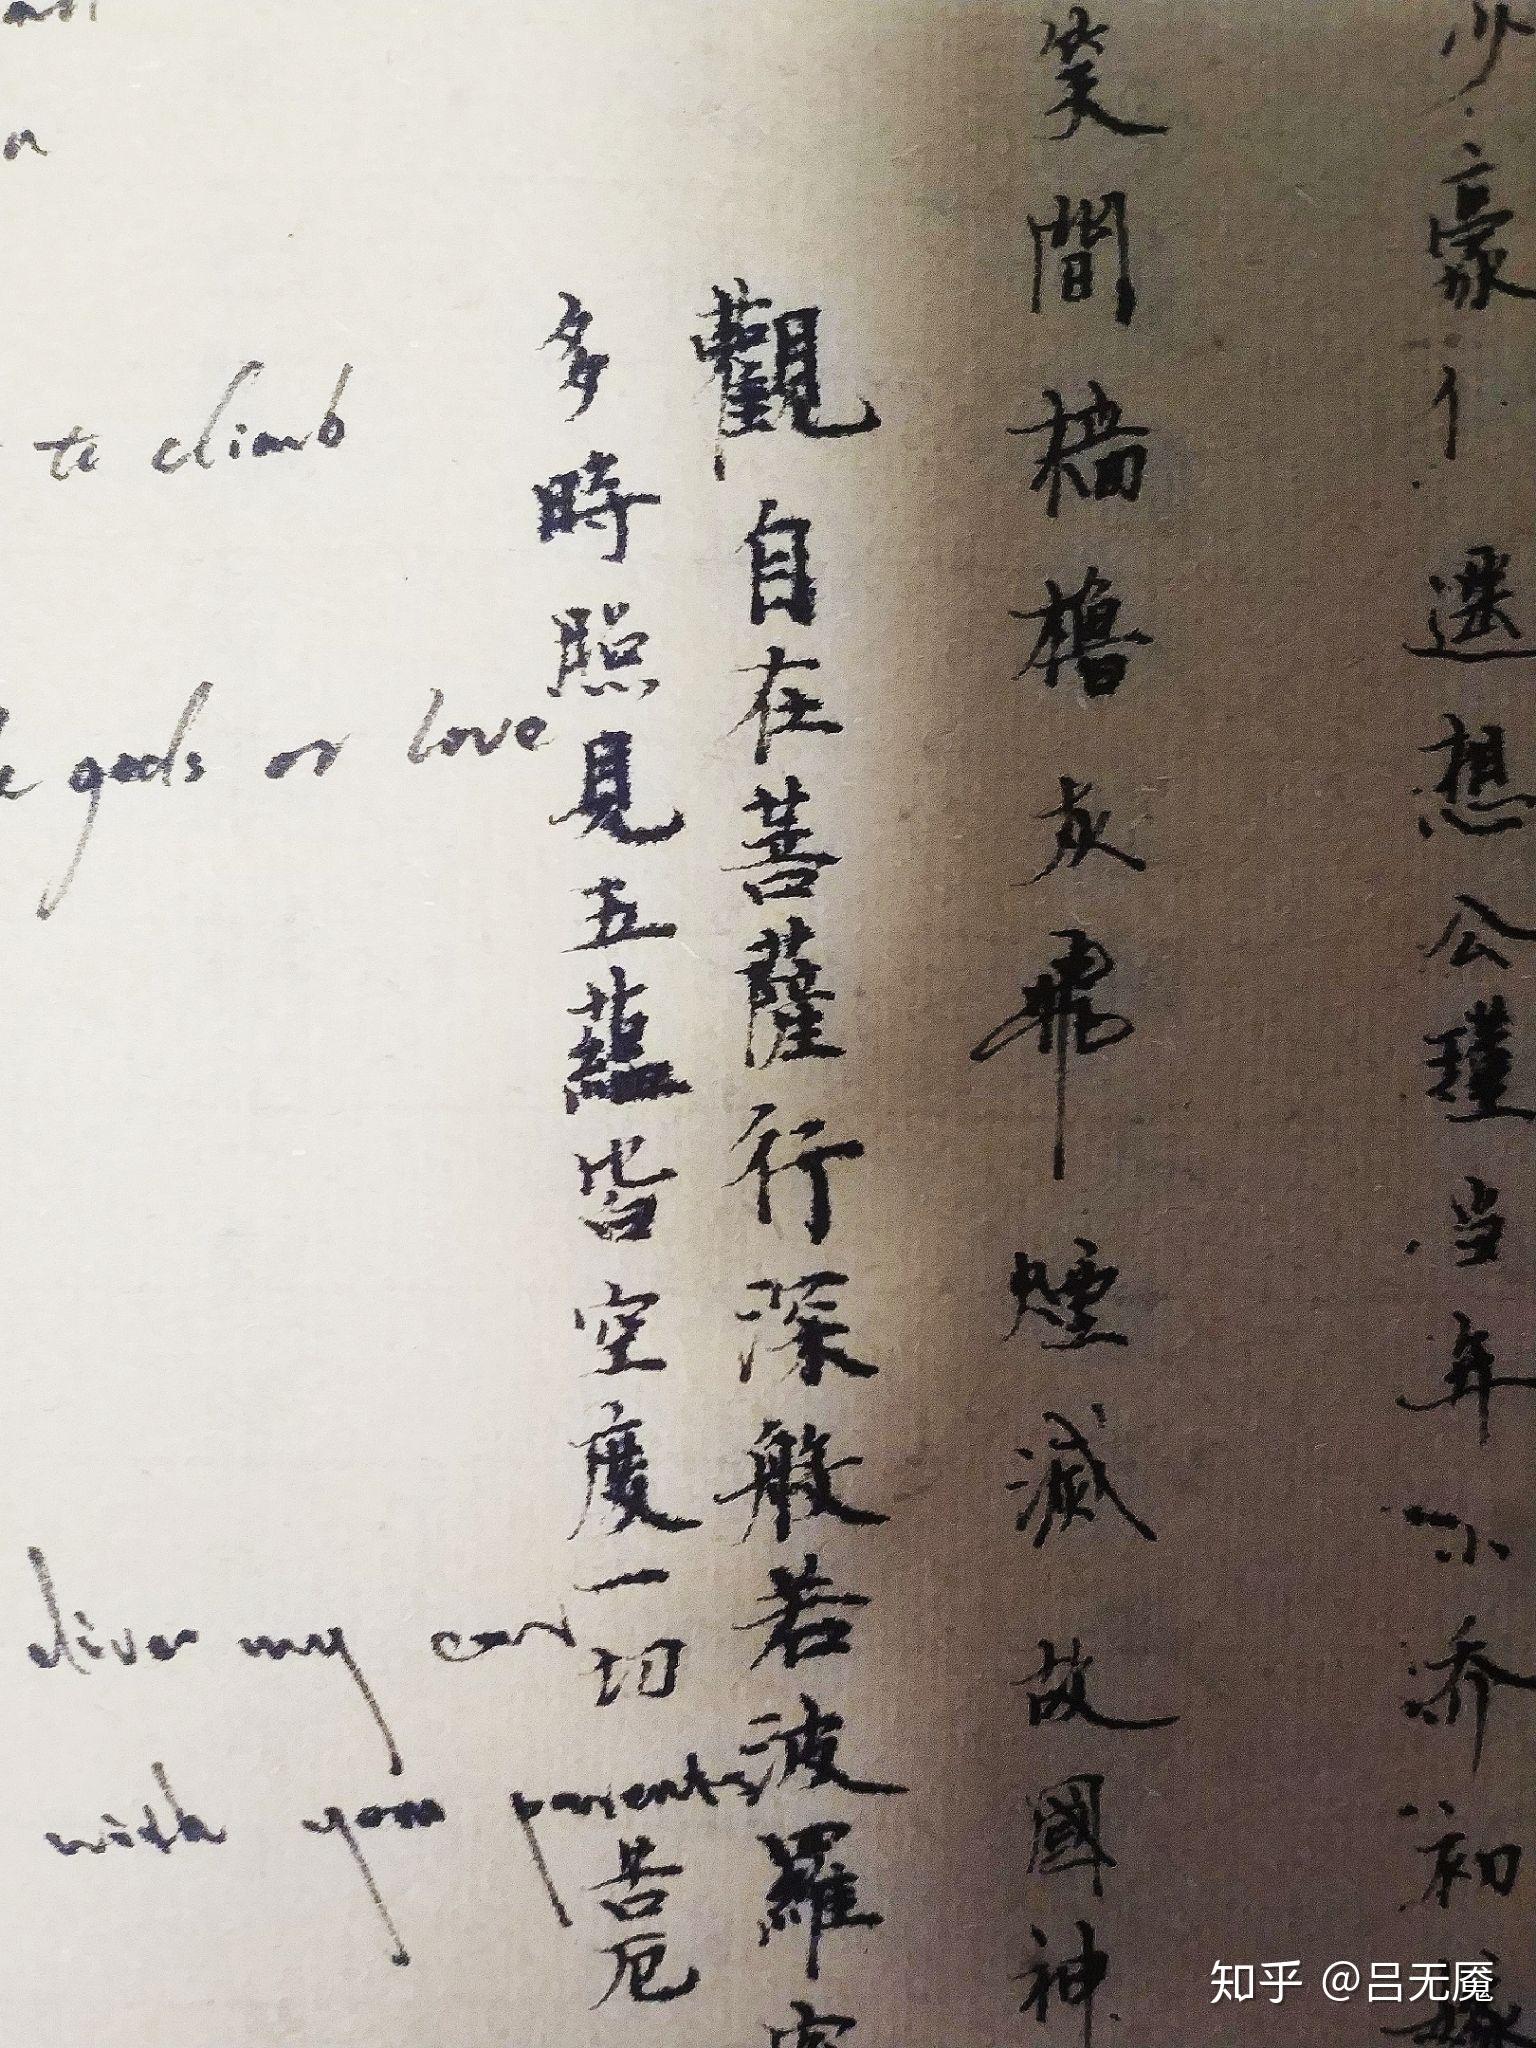 少豪遥想公瑾当年小乔初嫁
笑間檣櫓灰飛煙滅故國神
觀自在菩薩行深般若波羅
多時照見五蘊皆空度一切苦厄
to climb
gods or love
my car
with your parents
知乎 @吕无魇